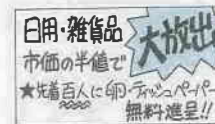 日用・雑貨品
大放出
市価の半値で
★先着百人に卵・ティッシュペーパー
無料進呈!!